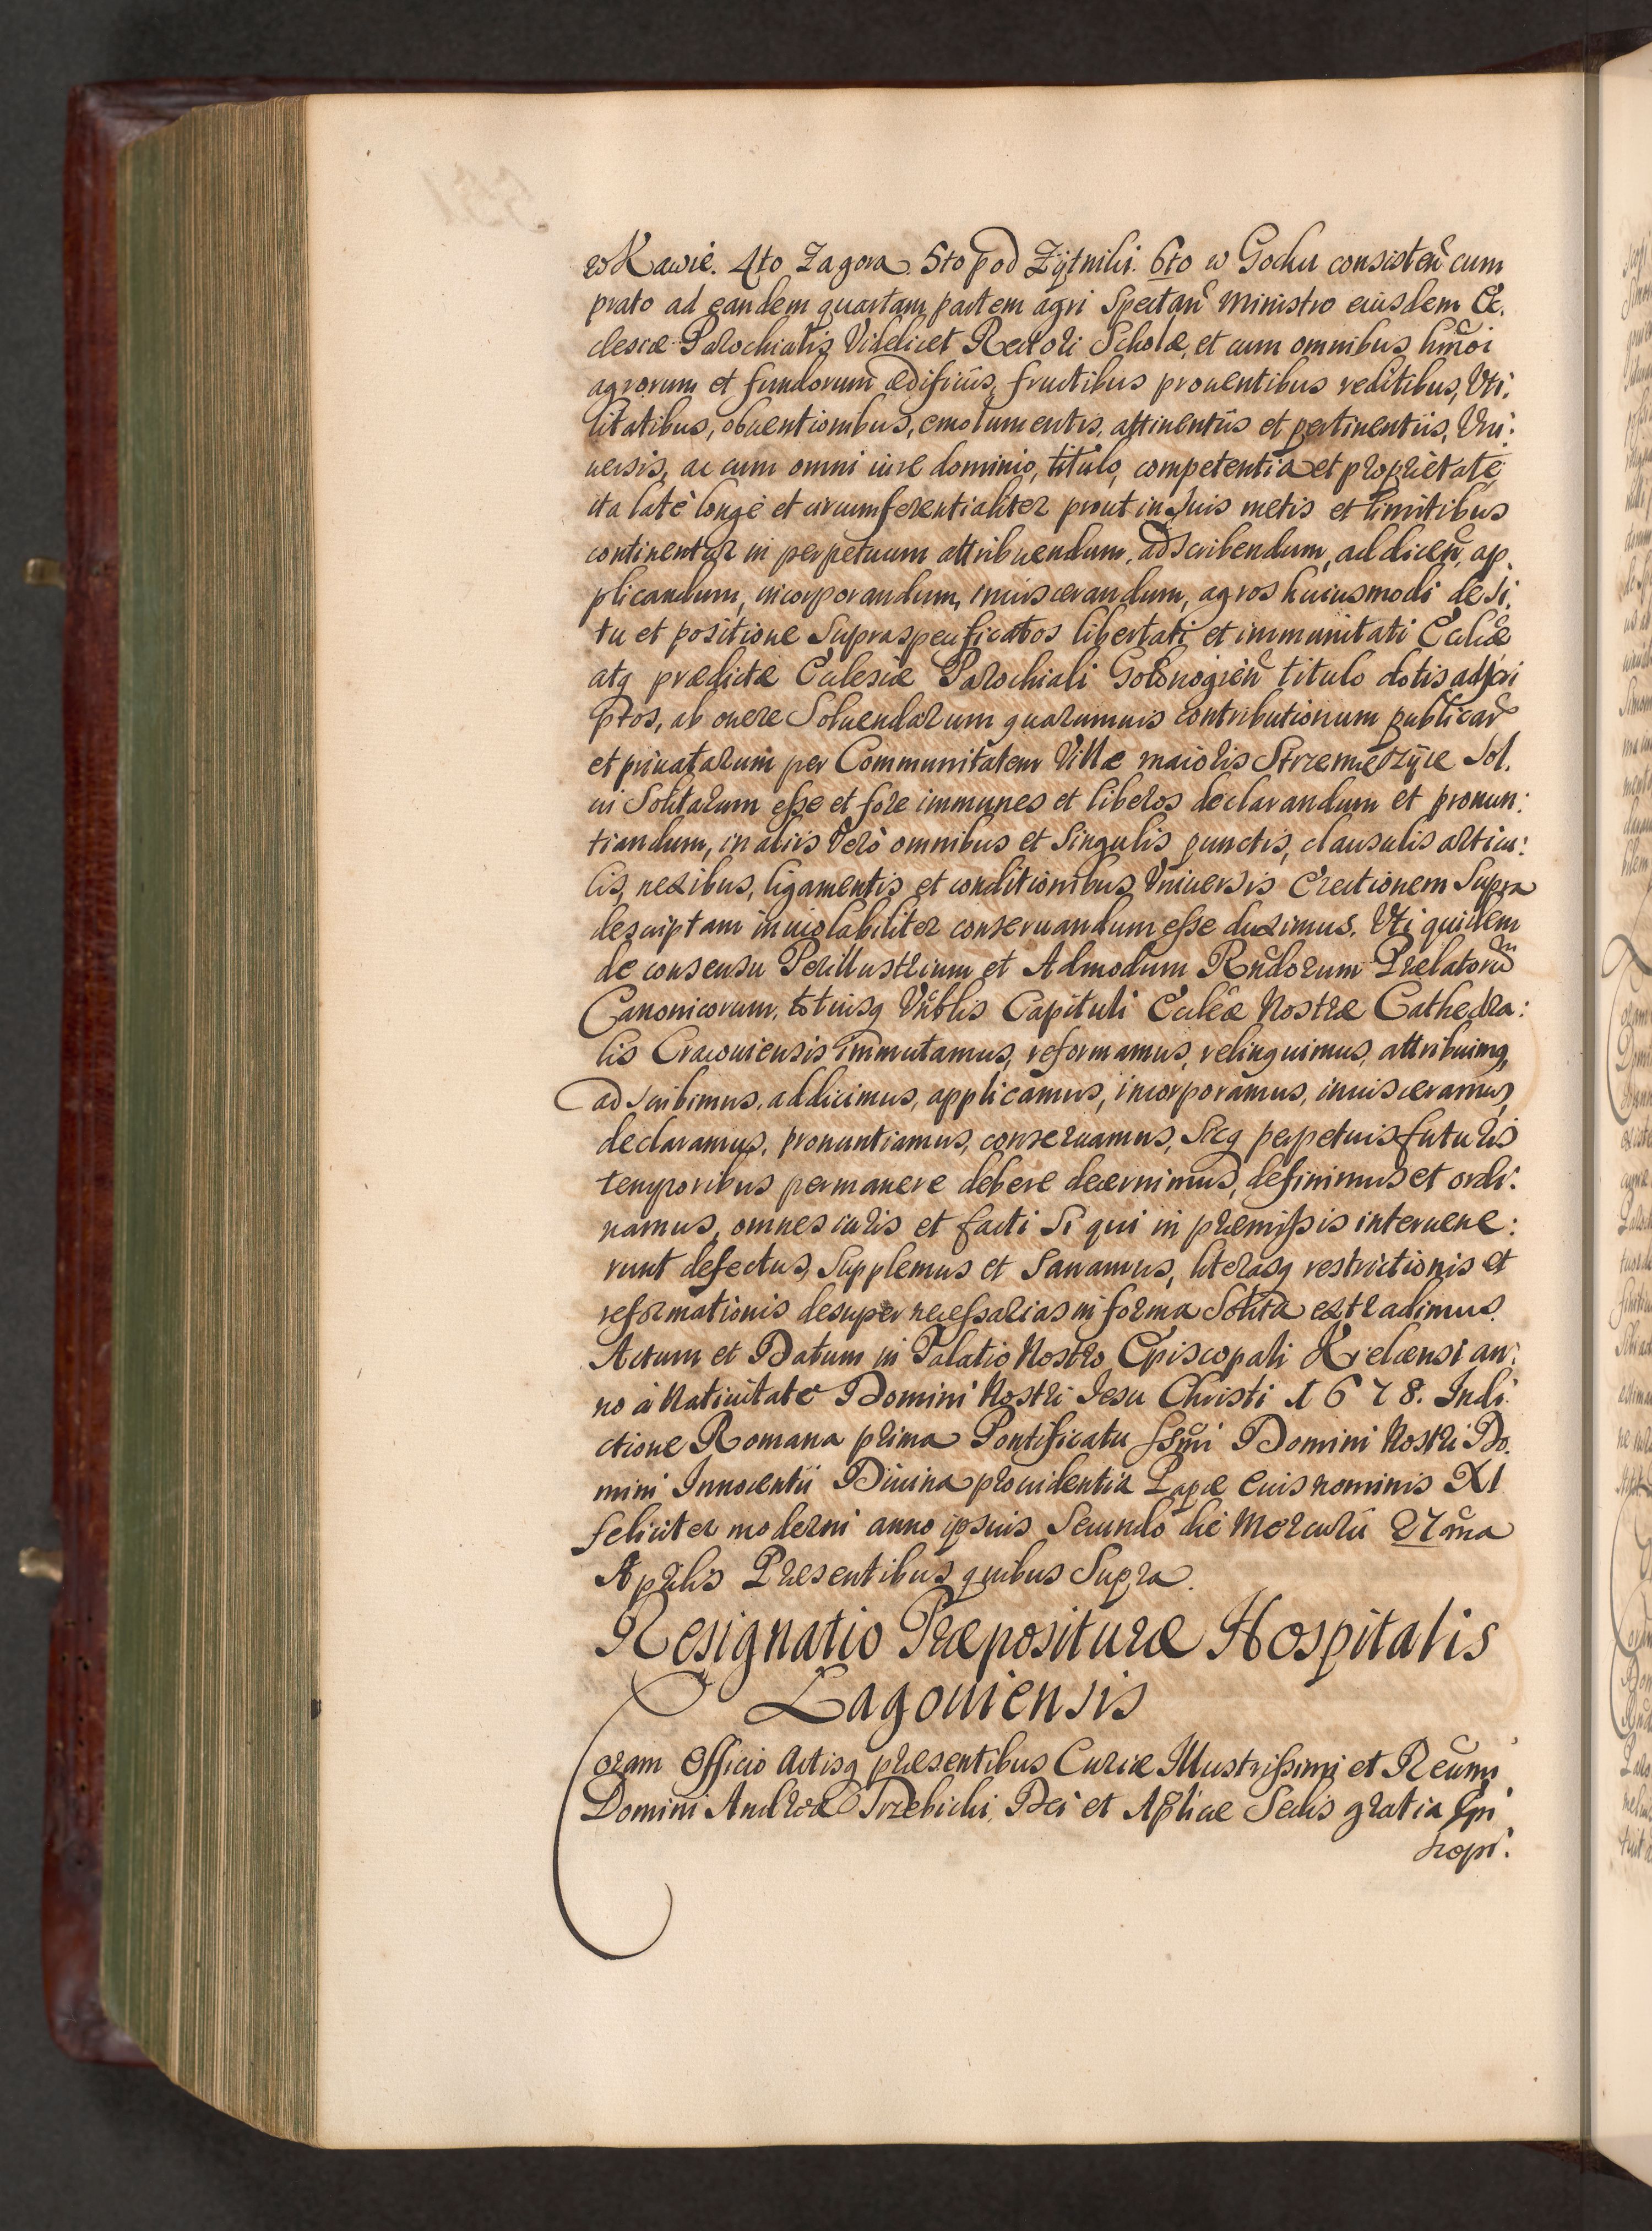 w Rawie. 4to Zagora. 5to pod Zÿtniki. 6to w Gochu consisteñ cum
prato ad eandem quartam partem agri Spectañ Ministro eiusdem Ec.
clesiæ Parochialis Videlicet Rectori Scholæ, et cum omnibus hm̃oi
agrorum et fundorum ædificiis, fructibus prouentibus reditibus, Vti:
litatibus, obuentionibus, emolumentis, attinentiis et pertinentiis, Vni:
uersis, ac cum omni iure dominio, titulo, competentia et proprietate
ita latè longè et circumferentialiter prout in Suis metis et limitibus
continentur in perpetuum attribuendum, adscribendum, addiceñ, ap.
plicandum, incorporandum, inuiscerandum, agros huiusmodi de Si.
tu et positione Supraspecificatos libertati et immunitati Eccliæ
atq prædictæ Eclesiæ Parochiali Golonogieñ titulo dotis adscri
ptos, ab onere Soluendarum quarumuis contributionum publicar̃
et priuatarum per Communitatem Villæ maioris Strzemieszÿce Sol.
ui Solitarum esse et fore immunes et liberos declarandum et pronun:
tiandum, in aliis Verò omnibus et Singulis punctis, clausulis articu:
lis, nexibus, ligamentis et conditionibus Vniuersis Erectionem Supra
descriptam inuiolabiliter conseruandum esse duximus. Vti quidem
de consensu Perillustrium et Admodum Rñdorum Prælatorũ
Canonicorum totiusq Vñblis Capituli Eccleæ Nostræ Cathedra:
lis Cracouiensis immutamus, reformamus, relinquimus, attribuimq,
adscribimus, addicimus, applicamus, incorporamus, inuisceramus,
declaramus, pronuntiamus, conseruamus, Sicq perpetuis futuris
temporibus permanere debere decernimus, definimus et ordi:
namus, omnes iuris et facti Si qui in præmissis interuene:
runt defectus, Supplemus et Sanamus, literasq restrictionis et
reformationis desuper necessarias in forma Solita extradimus.
Actum et Datum in Palatio Nostro Episcopali Kielcensi an:
no à Natiuitate Domini Nostri Iesu Christi 1678. Indi
ctione Romana prima Pontificatu Ssm̃i Domini Nostri Do.
mini Innocentii Diuina prouidentia Papæ Eius nominis XI
feliciter moderni anno ipsius Secundo die Mercurii 27ma
Aprilis Præsentibus quibus Supra.
Resignatio Præpositurae Hospitalis
Lagouiensis
Coram Officio Actisq præsentibus Curiæ Illustrissimi et Reũmi
Domini Andreæ Trzebicki, Dei et Apliæ Sedis gratia Epi
scopi.